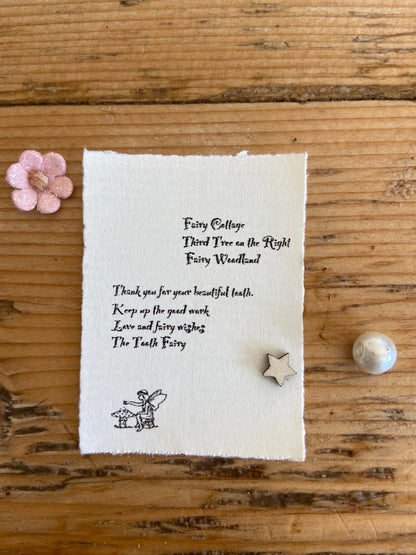 Fairy Cottage
Third Tree on the Right
Fairy Woodland
Thank you for your beautiful tooth.
Keep up the good work
Love and fairy wishes
The Tooth Fairy